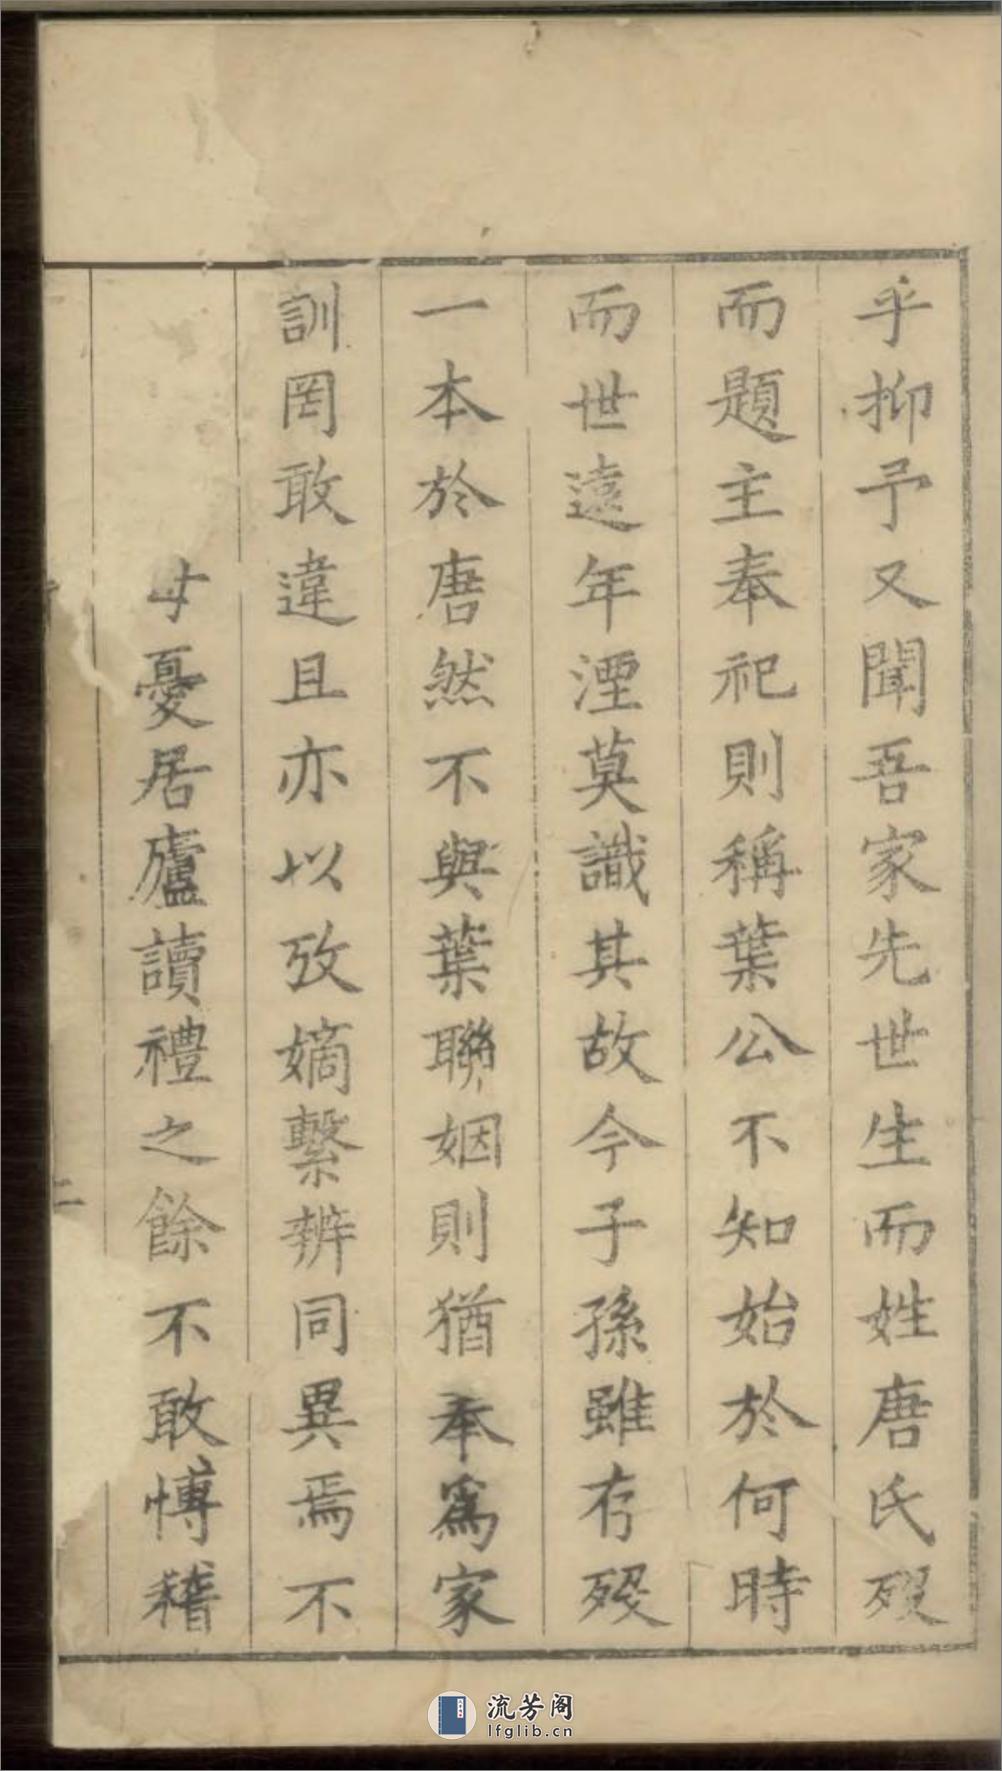 乎抑予又聞吾家先世生而姓唐氏歿
而題主奉祀則稱葉公不知始於何時
而世遠年湮莫識其故今子孫雖存歿
一本於唐然不與葉聯姻則猶奉爲家
訓罔敢違且亦以攷嫡繫辨同異焉不
憂居廬讀禮之餘不敢博稽
二
流芳阁
lfglib.cn